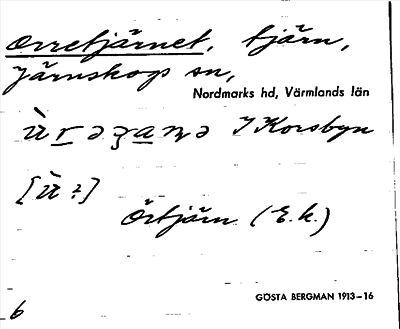 Orretjärnet, tjärn,
Järnskogs sn,
Nordmarks hd, Värmlands län
I Korsbyn
[ù ?]
Örtjärn (E.k.)
GÖSTA BERGMAN 1913–16
6